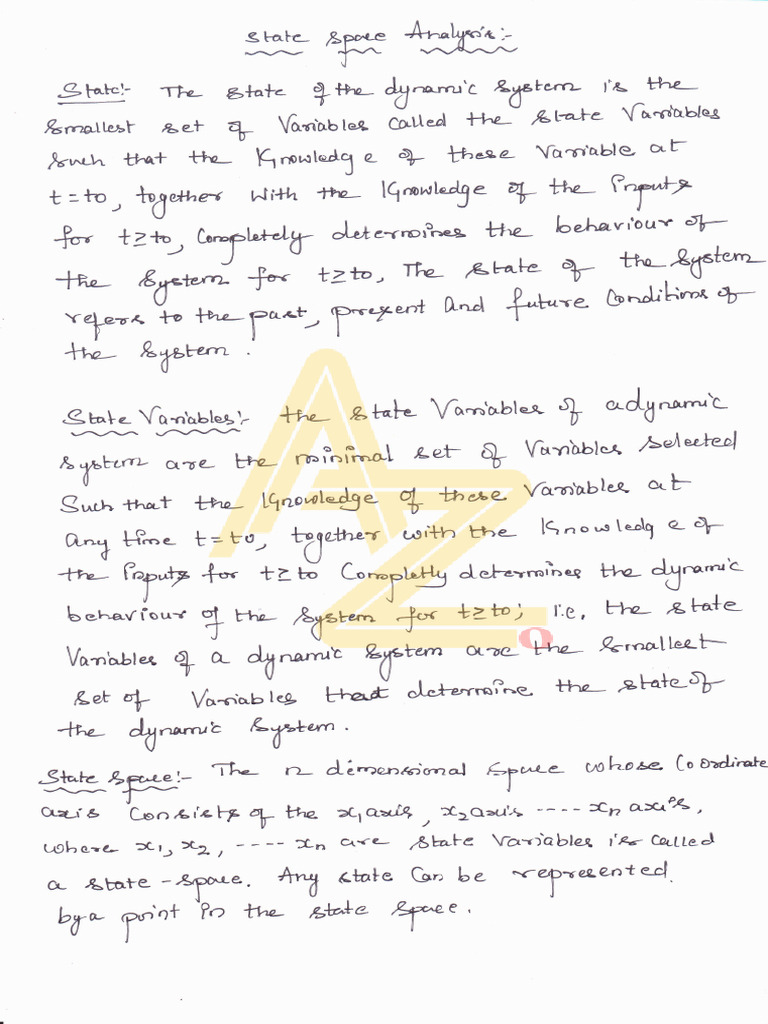 State Space Analysis:-
State:- The state of the dynamic system is the
smallest set of Variables called the state Variables
such that the Knowledge of these Variable at
t = to, together with the Knowledge of the Inputs
for t ≥ to, Completely determines the behaviour of
the system for t ≥ to, The state of the system
refers to the past, present and future Conditions of
the system.
State Variables:- the state Variables of a dynamic
system are the minimal set of Variables selected
Such that the Knowledge of these Variables at
any time t = to, together with the Knowledge of
the Inputs for t ≥ to Completly determines the dynamic
behaviour of the system for t ≥ to; i.e, the state
Variables of a dynamic system are the smallest
set of Variables that determine the state of
the dynamic system.
State space:- The n dimensional space whose Coordinate
axis Consists of the x1 axis, x2 axis ---- xn axis,
where x1, x2, ---- xn are state Variables is called
a state-space. Any state Can be represented
by a point in the state space.
AZ